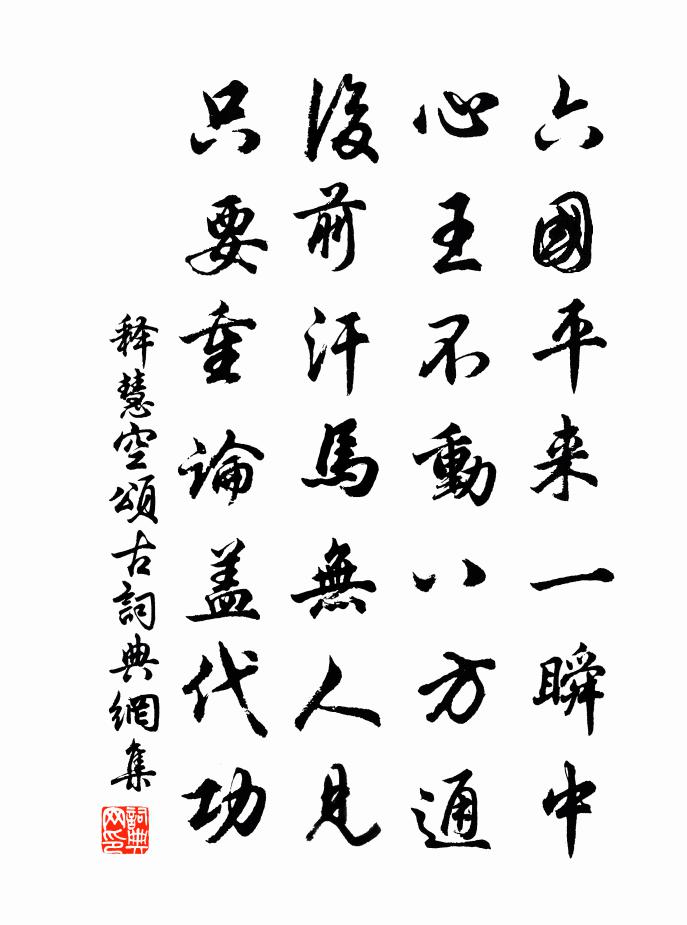 六國平来一瞬中
心王不動八方通
後前汗馬無人見
只要重論盖代功
释慧空頌古詞典網集
詞典网印